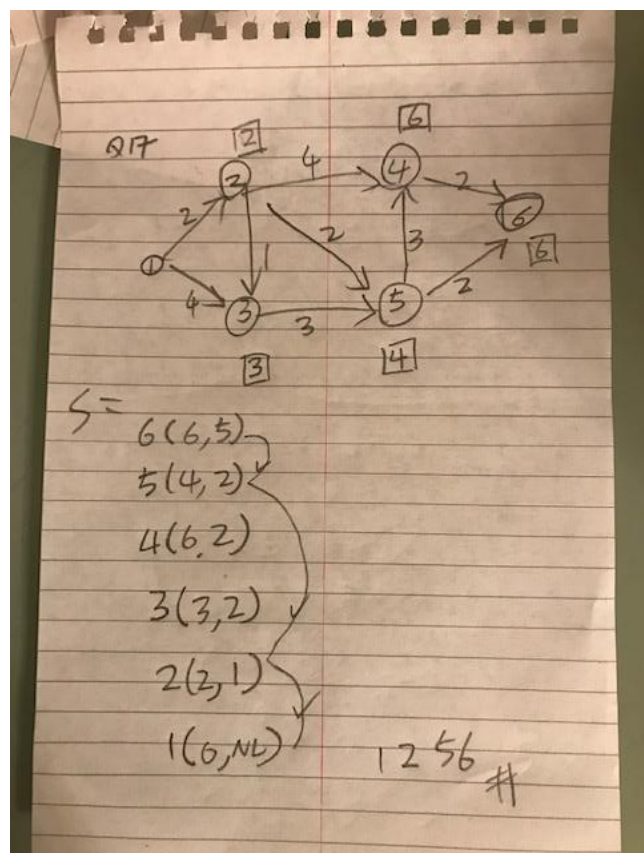 Q17
2
6
2
4
4
2
6
6
2
2
1
3
1
4
3
3
5
2
3
4
S=
6(6,5)
5(4,2)
4(6,2)
3(3,2)
2(2,1)
1(0,NL)
1 2 5 6 #